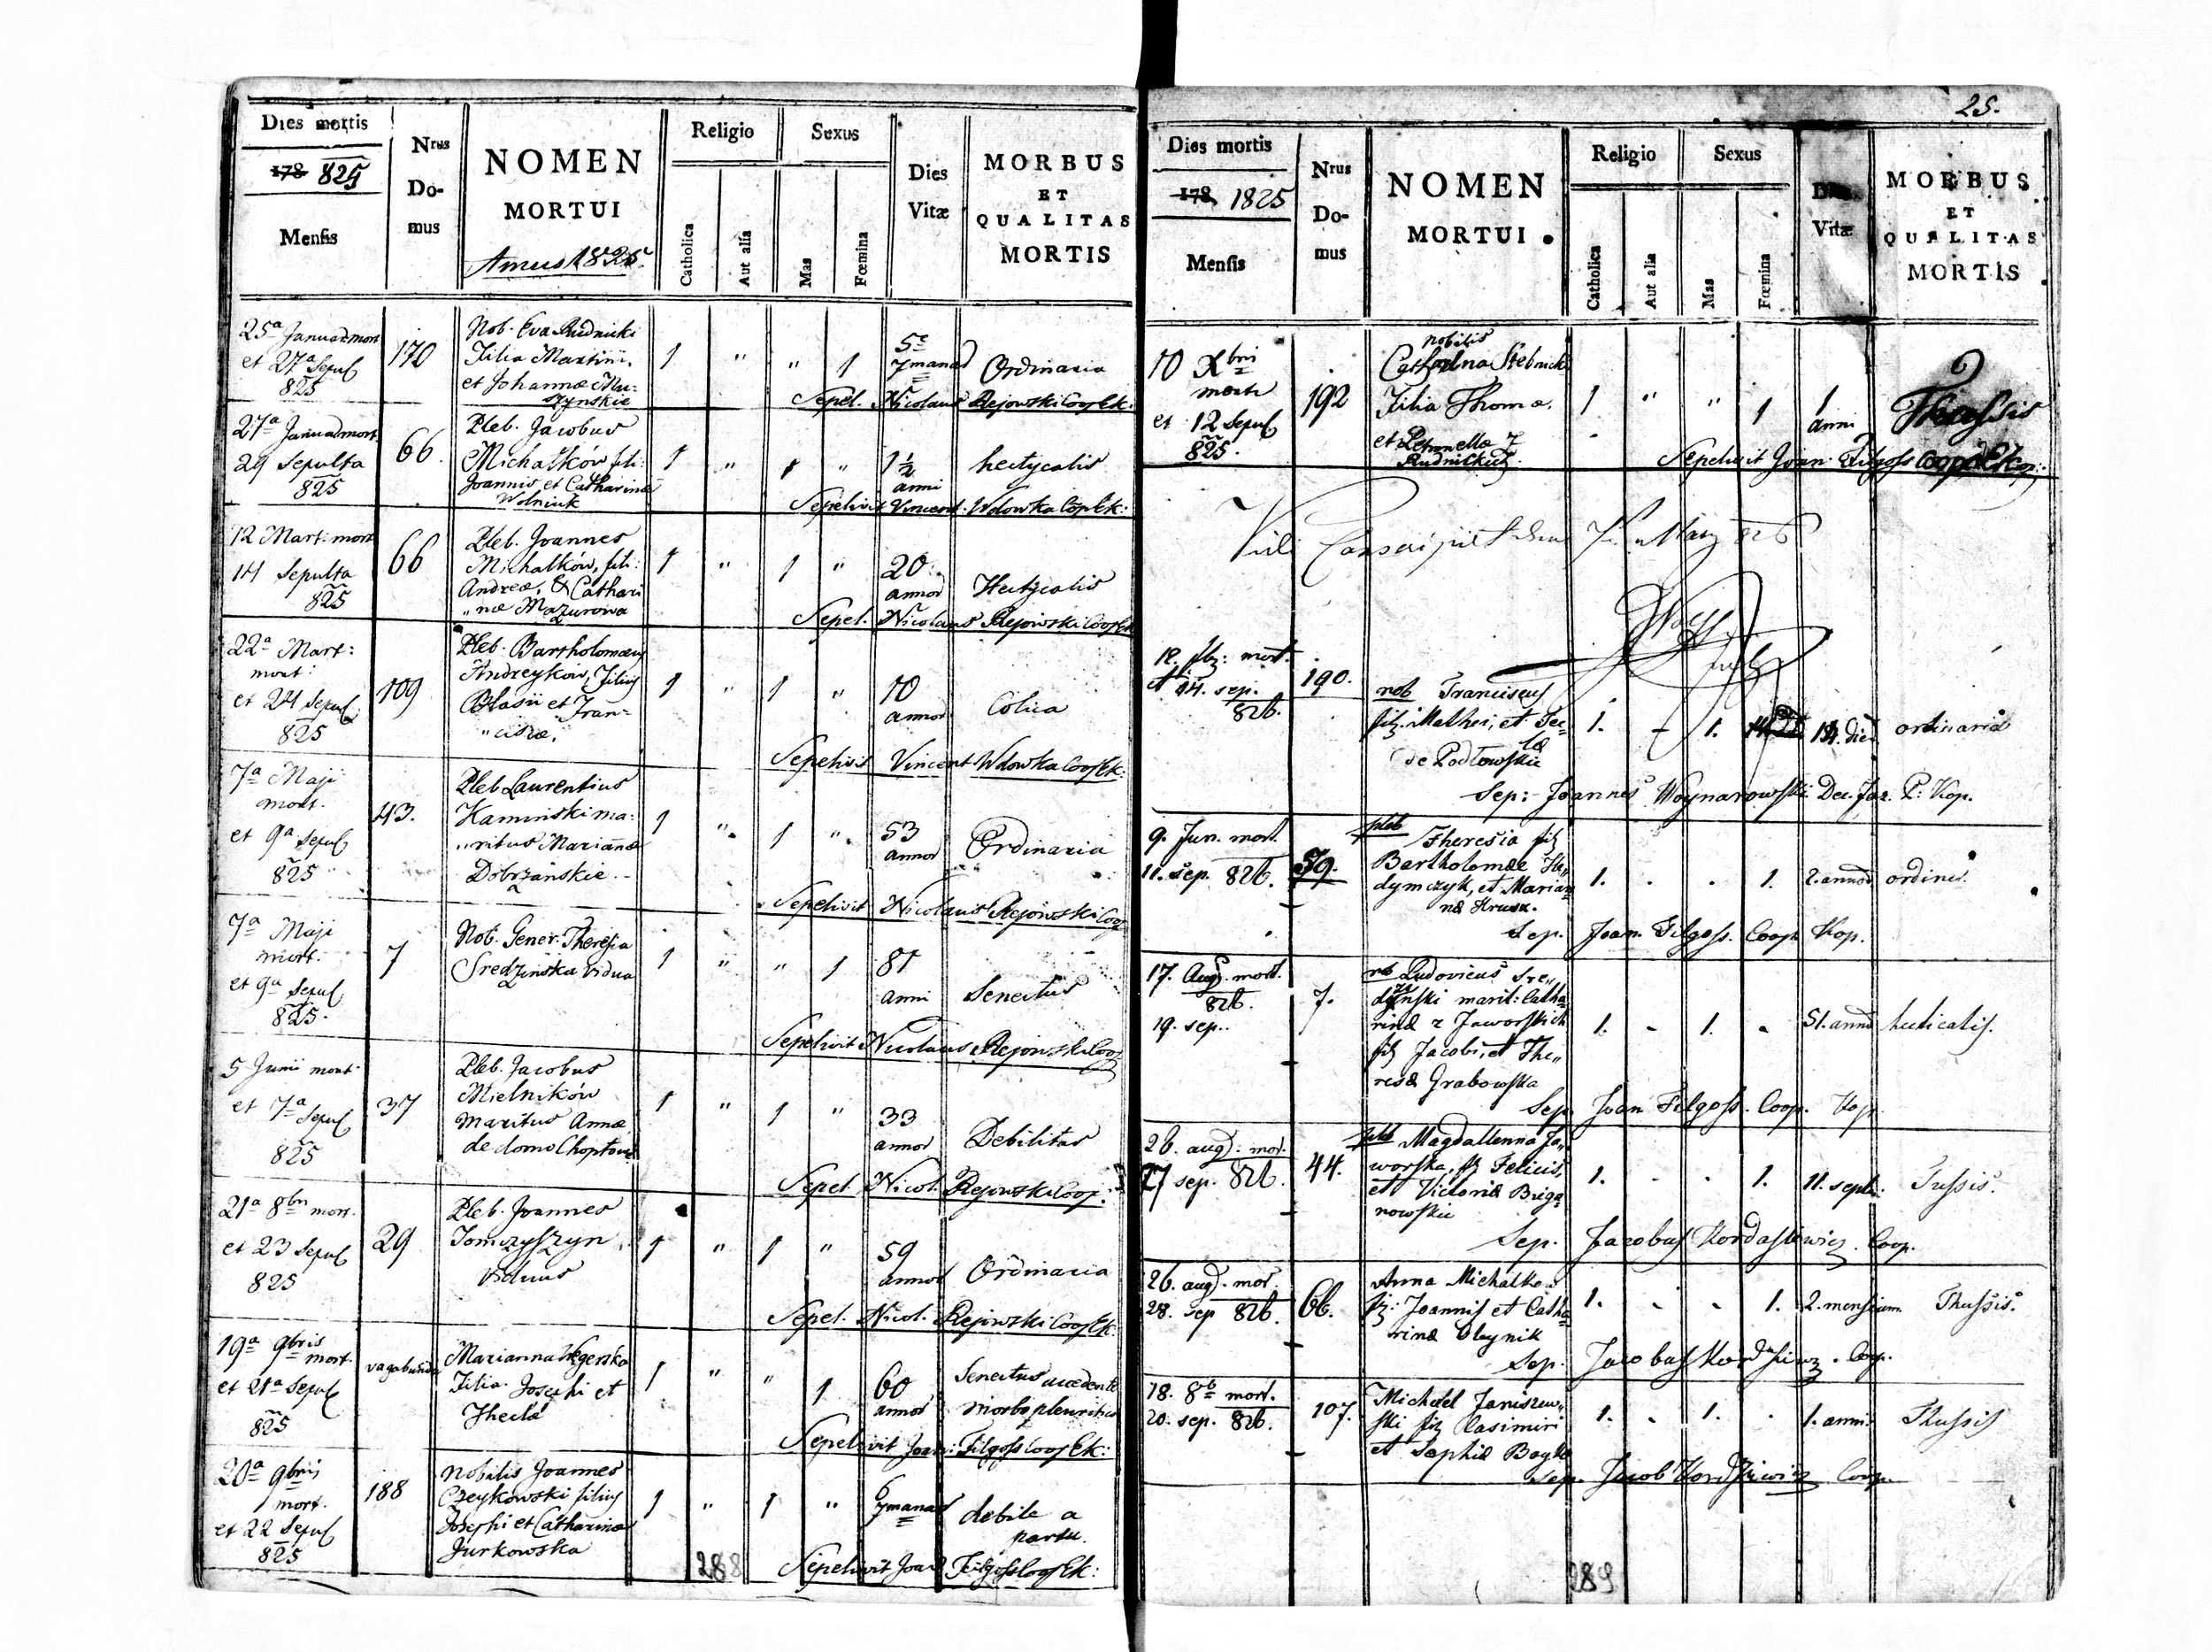 Dies mortis
178 825
Mensis
Nrus
Do-
mus
NOMEN
MORTUI
Annus 1825
Religio
Catholica
Aut alia
Sexus
Mas
Fœmina
Dies
Vitæ
MORBUS
ET
QUALITAS
MORTIS
25a Januar mort
et 27a Sepul
825
170
Nob. Eva Rudnicki
Filia Martini
et Johannæ Mu-
szynskie
1 " " 1
Ordinaria
Sepel. Nicolaus Rejowski Coop Ek:
27a Januar mort.
29 Sepulta
825
66
Pleb. Jacobus
Michałków fili:
Joannis et Catharinæ
Wolniuk
1 " 1 "
1 1/2
anni
hectycalis
Sepelivit Vincent. Wdowka Coop Ek:
12 Mart: mort
14 Sepulta
825
66
Pleb. Joannes
Michałków, fili:
Andreæ, & Cathari
"næ Mazurowa
1 " 1 "
20
annor
Hectycalis
Sepel. Nicolaus Rejowski Coop Ek
22a Mart:
mort:
et 24 Sepul
825
109
Pleb. Bartholomæus
Andreyków, Filius
Blasii et Fran=
"ciscæ.
1 " 1 "
10
annor
Colica
Sepelivit Vincent Wdowka Coop Ek:
7a Maji
mort.
et 9a Sepul
825
43.
Pleb Laurentius
Kaminski ma:
"ritus Mariannæ
Dobrzańskie.
1 " 1 "
53
annor
Ordinaria
Sepelivit Nicolaus Rejowski Coop
7a Maji
mort.
et 9a Sepul
825.
7
Nob. Gener. Theresia
Sredzinska vidua
1 " " 1
81
anni
Senectus
Sepelivit Nicolaus Rejowski Coop
5 Junii mort
et 7a Sepul
825
37
Pleb. Jacobus
Mielników
maritus Annæ
de domo
1 " 1 "
33
annor
Debilitas
Sepel Nicol. Rejowski Coop:
21a 8bri mort.
et 23 Sepul
825
29
Pleb. Joannes
Tomczyszyn
viduus
1 " 1 "
59
annor
Ordinaria
Sepel. Nicol. Rejowski Coop Ek
19a 9bris
mort.
et 21a Sepul
825
vagabunda
Marianna Węgerska
Filia Josephi et
Theclæ
1 " " 1
60
annor
Senectus accedente
morbo pleuritico
Sepelivit Joan: Filgoss Coop Ek:
20a 9bris
mort.
et 22 Sepul
825
188
Nobilis Joannes
Czeykowski filius
Josephi et Catharinæ
Jurkowska
1 " 1 "
6
debile a
partu.
Sepelivit Joan Filgoss Coop Ek:
288
25.
Dies mortis
178 1825
Mensis
Nrus
Do-
mus
NOMEN
MORTUI
Religio
Catholica
Aut alia
Sexus
Mas
Fœmina
Dies
Vitæ
MORBUS
ET
QUALITAS
MORTIS
10 Xbri
mort
et 12 Sepul
825.
192
nobilis
Stebnicki
Filia Thomæ
et Petronellæ
1 " " 1
1
anni
Sepelivit Joan: Filgoss Coop
Mart 826
mort.
et 14. sep.
826.
190.
nob Franciscus
fil. Mathei, et Tec=
læ
de Podłowskie
1. - 1.
14. dier
ordinaria
Sep: Joannes Woynarowski Dec. Jaz. P: Kop.
9. Jun. mort.
11. sep. 826.
59.
pleb Theresia fil
Bartholomæ
dymczyk, et Marian
næ
1. . . 1.
2. annor
ordiner.
Sep. Joan Filgoss. Coop Kop.
17. Aug. mort.
826.
19. sep.
7.
nob Ludovicus Sre"
dzynski marit: Catha=
rinæ z Jaworskich
fil Jacobi, et The"
resæ Grabowska
1. - 1. -
51. anno
hecticalis.
Sep Joan Filgoss. Coop. Kop
26. aug: mor.
27 sep. 826.
44.
pleb Magdallenna Ja"
worska, fil Felicis,
et Victoriæ Briga
nowskie
1. . . 1.
11. septi:
Tussis.
Sep. Jacobus Kordasiewicz. Coop.
26. aug. mor.
28. sep 826.
66.
Anna Michalko.
fil: Joannis et Catha=
rinæ Oleynik
1. . . 1.
2. mensium.
Thussis.
Sep. Jacobus Kordasiewicz. Coop.
18. 8b mort.
20. sep. 826.
107.
Michael Janiszew"
ski fil Casimiri
et Sophiæ Boyko
1. . 1. .
1. anni
Thussis
Sep. Jacob Kordasiewicz Coop.
289